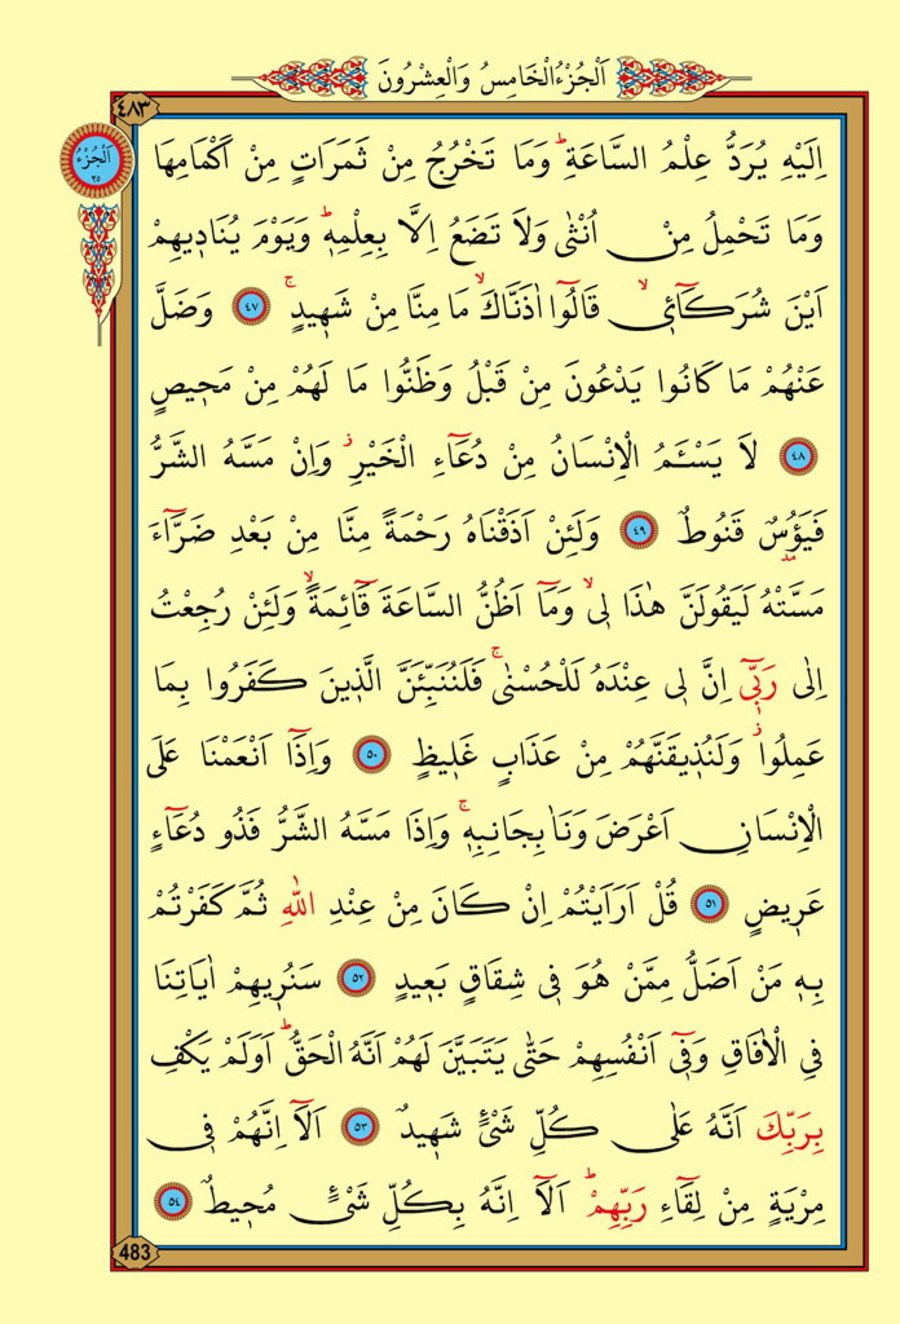 اَلْجُزْءُ الْخَامِسُ وَالْعِشْرُونَ
٤٨٣
اَلْجُزْءُ
٢٥
اِلَيْهِ يُرَدُّ عِلْمُ السَّاعَةِۜ وَمَا تَخْرُجُ مِنْ ثَمَرَاتٍ مِنْ اَكْمَامِهَا
وَمَا تَحْمِلُ مِنْ اُنْثٰى وَلَا تَضَعُ اِلَّا بِعِلْمِه۪ۜ وَيَوْمَ يُنَاد۪يهِمْ
اَيْنَ شُرَكَٓاء۪يۙ قَالُٓوا اٰذَنَّاكَۙ مَا مِنَّا مِنْ شَه۪يدٍۚ ﴿٤٧﴾ وَضَلَّ
عَنْهُمْ مَا كَانُوا يَدْعُونَ مِنْ قَبْلُ وَظَنُّوا مَا لَهُمْ مِنْ مَح۪يصٍ
﴿٤٨﴾ لَا يَسْـَٔمُ الْاِنْسَانُ مِنْ دُعَٓاءِ الْخَيْرِۘ وَاِنْ مَسَّهُ الشَّرُّ
فَيَؤُ۫سٌ قَنُوطٌ ﴿٤٩﴾ وَلَئِنْ اَذَقْنَاهُ رَحْمَةً مِنَّا مِنْ بَعْدِ ضَرَّٓاءَ
مَسَّتْهُ لَيَقُولَنَّ هٰذَا ل۪يۙ وَمَٓا اَظُنُّ السَّاعَةَ قَٓائِمَةًۙ وَلَئِنْ رُجِعْتُ
اِلٰى رَبّ۪ٓي اِنَّ ل۪ي عِنْدَهُ لَلْحُسْنٰىۚ فَلَنُنَبِّئَنَّ الَّذ۪ينَ كَفَرُوا بِمَا
عَمِلُواۘ وَلَنُذ۪يقَنَّهُمْ مِنْ عَذَابٍ غَل۪يظٍ ﴿٥٠﴾ وَاِذَٓا اَنْعَمْنَا عَلَى
الْاِنْسَانِ اَعْرَضَ وَنَاٰ بِجَانِبِه۪ۚ وَاِذَا مَسَّهُ الشَّرُّ فَذُو دُعَٓاءٍ
عَر۪يضٍ ﴿٥١﴾ قُلْ اَرَاَيْتُمْ اِنْ كَانَ مِنْ عِنْدِ اللّٰهِ ثُمَّ كَفَرْتُمْ
بِه۪ مَنْ اَضَلُّ مِمَّنْ هُوَ ف۪ي شِقَاقٍ بَع۪يدٍ ﴿٥٢﴾ سَنُر۪يهِمْ اٰيَاتِنَا
فِي الْاٰفَاقِ وَف۪ٓي اَنْفُسِهِمْ حَتّٰى يَتَبَيَّنَ لَهُمْ اَنَّهُ الْحَقُّۜ اَوَلَمْ يَكْفِ
بِرَبِّكَ اَنَّهُ عَلٰى كُلِّ شَيْءٍ شَه۪يدٌ ﴿٥٣﴾ اَلَٓا اِنَّهُمْ ف۪ي
مِرْيَةٍ مِنْ لِقَٓاءِ رَبِّهِمْۜ اَلَٓا اِنَّهُ بِكُلِّ شَيْءٍ مُح۪يطٌ ﴿٥٤﴾
483